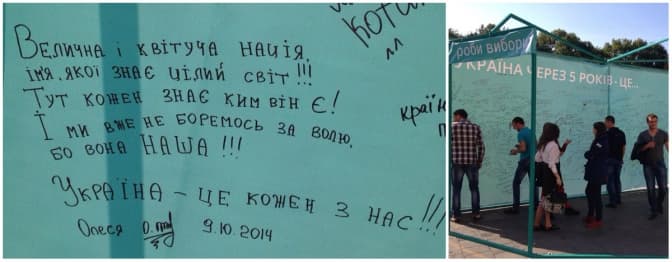 Велична і квітуча нація,
імя, якої знає цілий світ!!!
Тут кожен знає ким він є!
І ми вже не боремось за волю,
бо вона НАША!!!
Україна – це кожен з нас!!!
Олеся 9.10.2014
країн
роби вибор
КРАЇНА ЧЕРЕЗ 5 РОКІВ - ЦЕ...